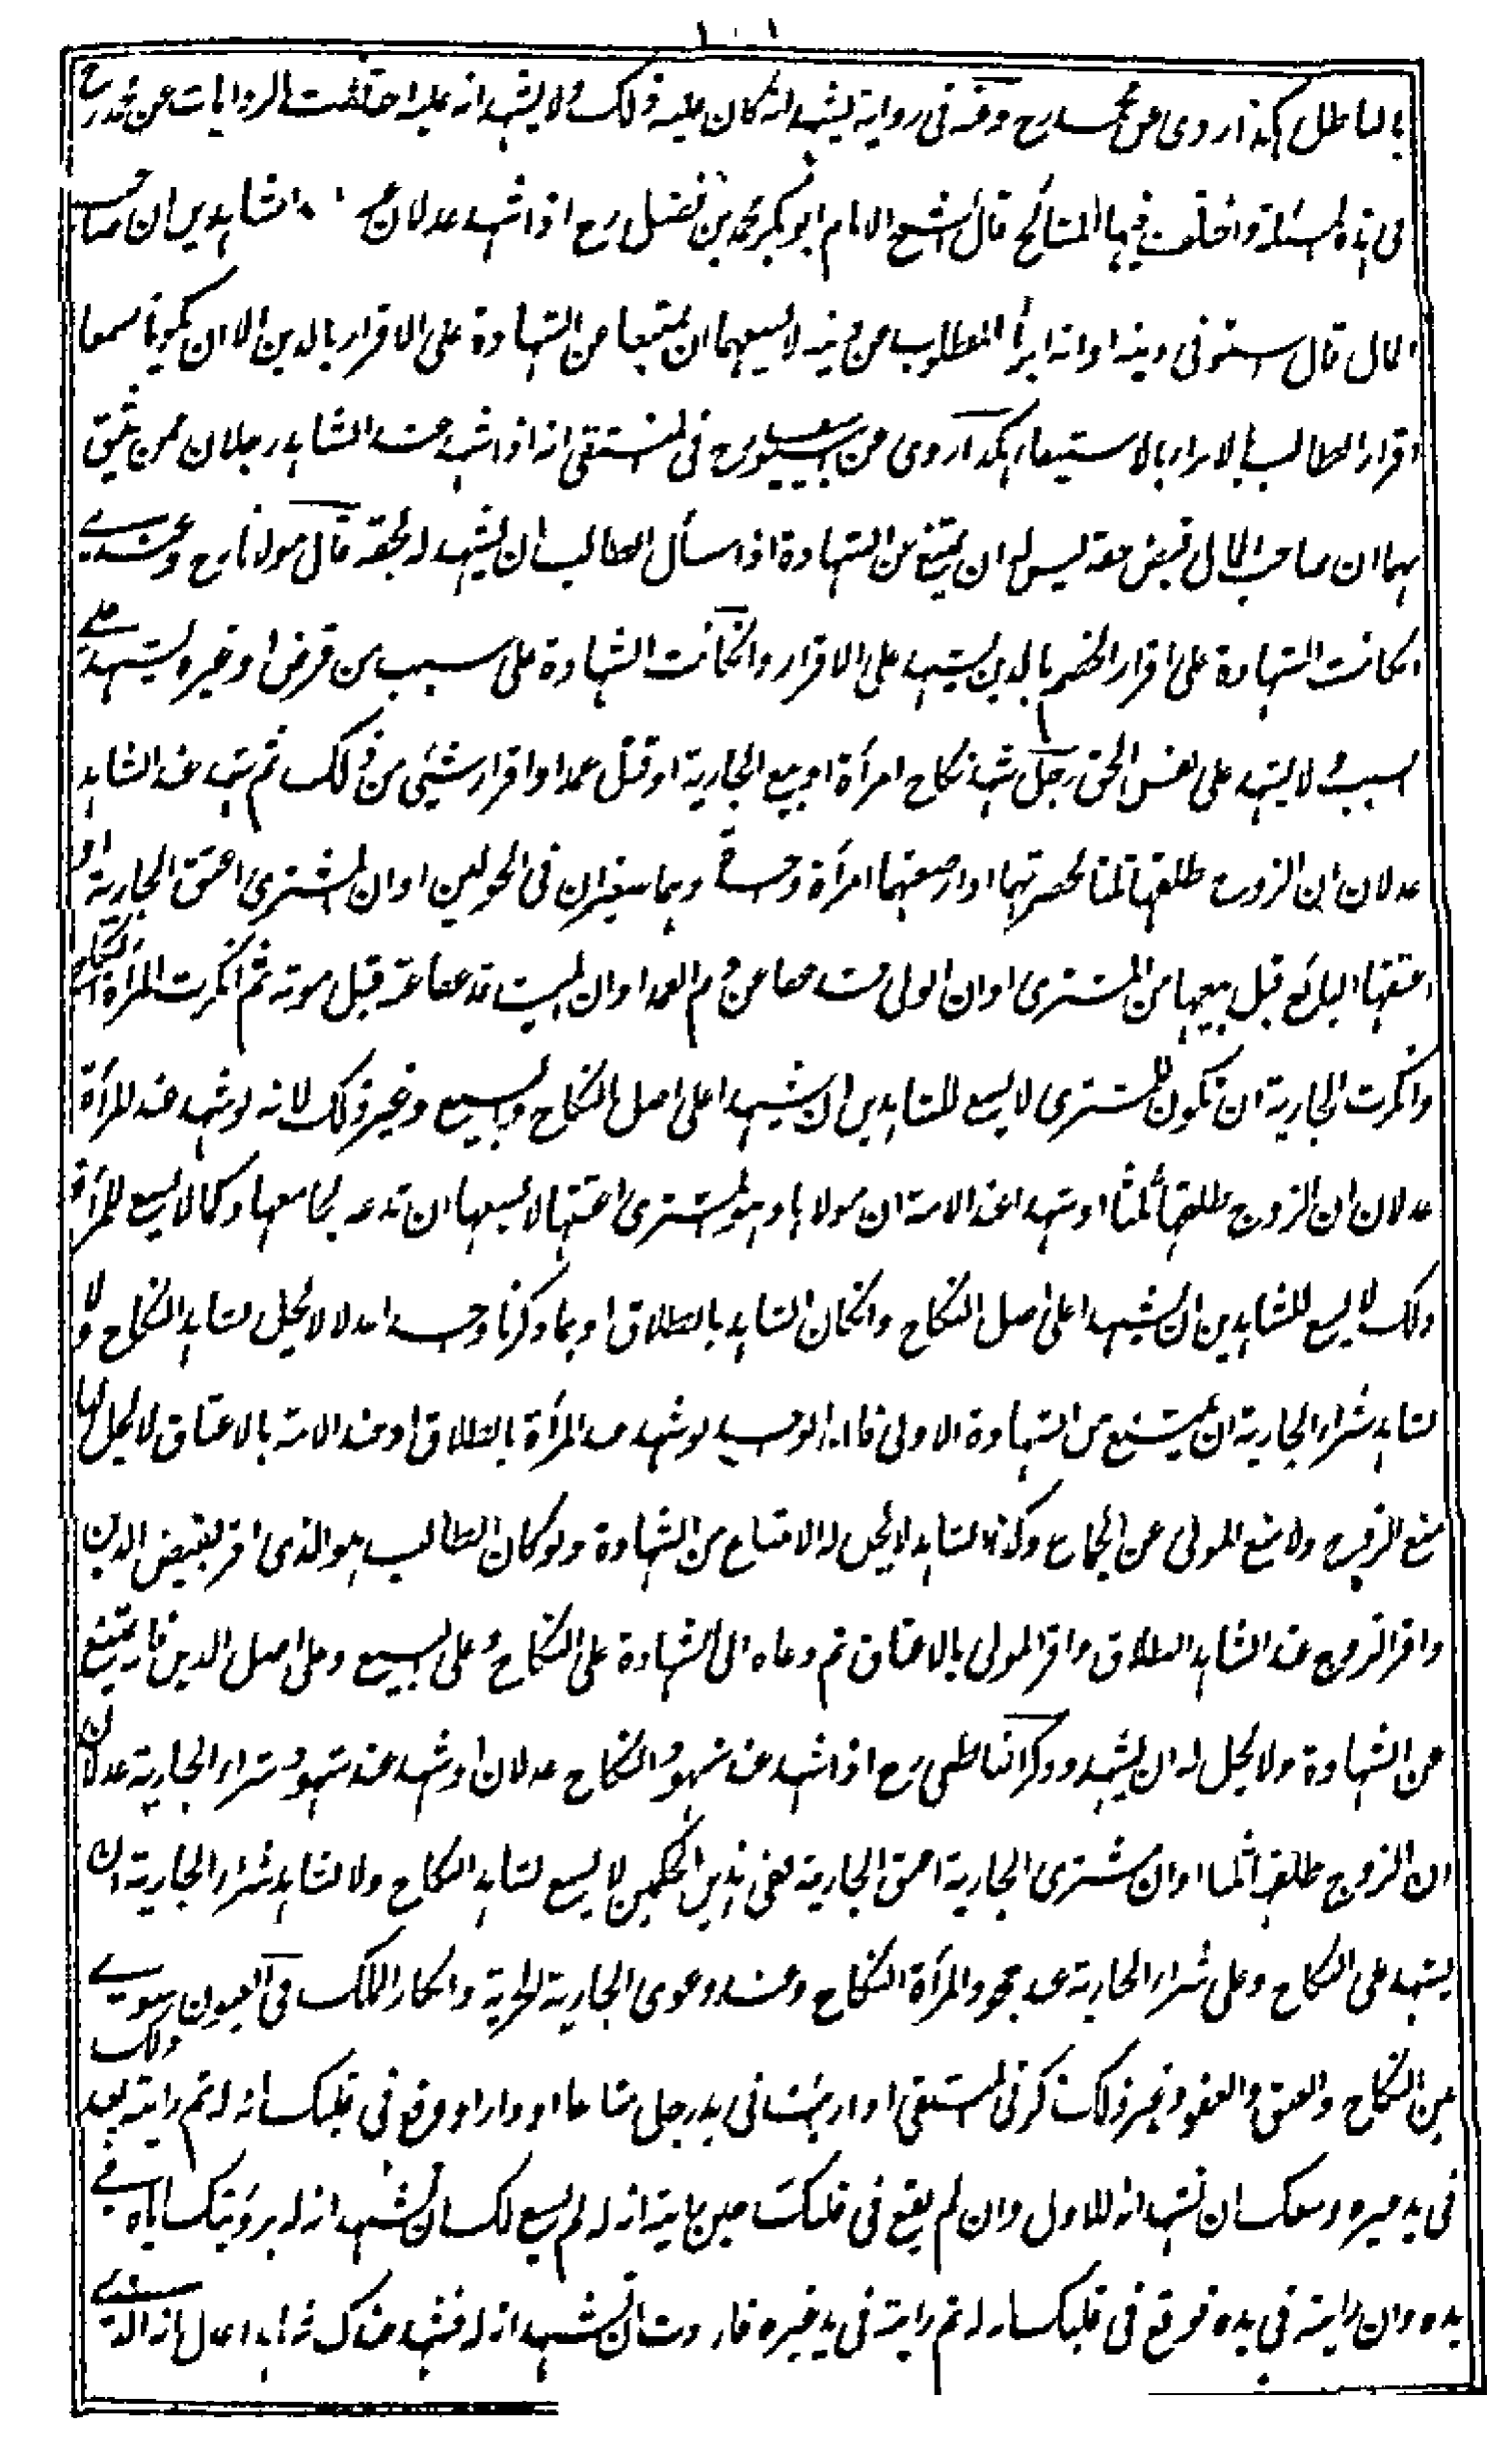 ١٠١
بالباطل هكذا روى عن محمد رح وعنه في رواية يشهد انه كان عليه ذلك ولا يشهد انه عليه اختلفت الروايات عن محمد رح
في هذه المسئلة واختلف فيها المشائخ قال الشيخ الامام ابو بكر محمد بن فضل رح اذا شهد عدلان عند الشاهدين ان صاحب
المال قال استوفى دينه او انه ابرأ المطلوب من دينه لا يسعهما ان يمتنعا من الشهادة على الاقرار بالدين الا ان يكونا سمعا
اقرار الطالب بالابراء بالاستيفاء هكذا روى عن ابي يوسف رح في المنتقى انه اذا شهد عند الشاهد رجلان ممن يثق
بهما ان صاحب المال قبض حقه ليس له ان يمتنع من الشهادة اذا سأل الطالب ان يشهد له بحقه قال مولانا رح وعندي
انكانت الشهادة على اقرار الخصم بالدين يشهد على الاقرار وانكانت الشهادة على سبب من قرض او غيره يشهد على
السبب ولا يشهد على نفس الحق رجل شهد نكاح امرأة او بيع الجارية او قتل عمد او اقرار شيئ من ذلك ثم شهد عند الشاهد
عدلان ان الزوج طلقها ثلثا بحضرتهما او ارضعتهما امرأة واحدة وهما صغيران في الحولين او ان المشترى اعتق الجارية او
اعتقها البائع قبل بيعها من المشترى او ان الولى قد عفا عن دم العمد او ان الميت قد عفا عنه قبل موته ثم انكرت المرأة النكاح
وانكرت الجارية ان تكون للمشترى لا يسع للشاهدين ان يشهدا على اصل النكاح والبيع وغير ذلك لانه لو شهد عند المرأة
عدلان ان الزوج طلقها ثلثا او شهدا عند الامة ان مولاها وهو المشترى اعتقها لا يسعها ان تدعه يجامعها وكما لا يسع للمرأة
ذلك لا يسع للشاهدين ان يشهدا على اصل النكاح وانكان الشاهد بالطلاق او بما ذكرنا واحدا عدلا لا يحل لشاهد النكاح ولا
لشاهد شراء الجارية ان يمتنع من الشهادة الاولى فان الواحد لو شهد عند المرأة بالطلاق او عند الامة بالاعتاق لا يحل لها
منع الزوج ولا منع المولى عن الجماع وكذا الشاهد لا يحل له الامتناع من الشهادة ولو كان الطالب هو الذى اقر بقبض الدين
واقر الزوج عند الشاهد بالطلاق واقر المولى بالاعتاق ثم دعاه الى الشهادة على النكاح وعلى البيع وعلى اصل الدين فانه يمتنع
عن الشهادة ولا يحل له ان يشهد وذكر الناطفى رح اذا شهد عند شهود النكاح عدلان او شهد عند شهود شراء الجارية عدلان
ان الزوج طلقها ثلثا او ان مشترى الجارية اعتق الجارية ففى هذين الحكمين لا يسع لشاهد النكاح ولا لشاهد شراء الجارية ان
يشهد على النكاح وعلى شراء الجارية عند جحود المرأة النكاح وعند دعوى الجارية الحرية وانكار الملك في العيون يسوى
بين النكاح والعتق والعفو وغير ذلك ذكر في المنتقى اذا رأيت في يد رجل متاعا او دارا ووقع في قلبك انه له ثم رايته بعد ذلك
في يد غيره وسعك ان تشهد انه للاول وان لم يقع في قلبك حين رايته انه له لم يسع لك ان تشهد انه له برؤيتك اياه في
يده وان رايته في يده فوقع في قلبك انه له ثم رايته في يد غيره فاردت ان تشهد انه له فشهد عندك شاهدا عدل انه الذى